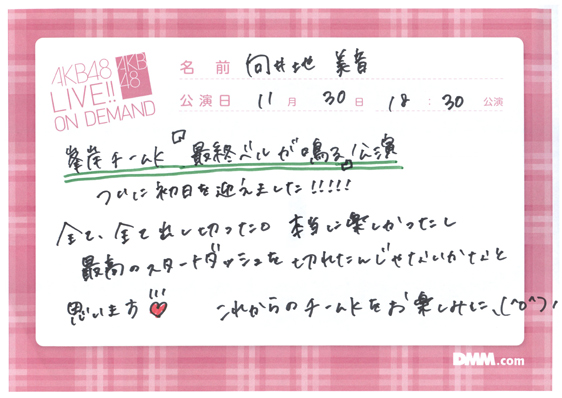 AKB48
LIVE!!
ON DEMAND
AKB
48
名前 向井地 美音
公演日 11月 30日 18:30 公演
峯岸チームK『最終ベルが鳴る』公演
ついに初日を迎えました!!!!!
全て、全て出し切った。本当に楽しかったし
最高のスタートダッシュを切れたんじゃないかなと
思います!!!♥ これからのチームKをお楽しみに、(^o^)ノ
DMM.com